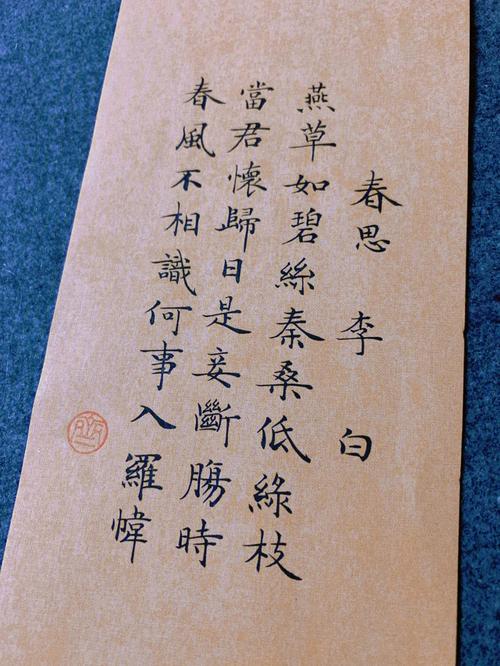 春思 李白
燕草如碧絲秦桑低綠枝
當君懷歸日是妾斷腸時
春風不相識何事入羅幃